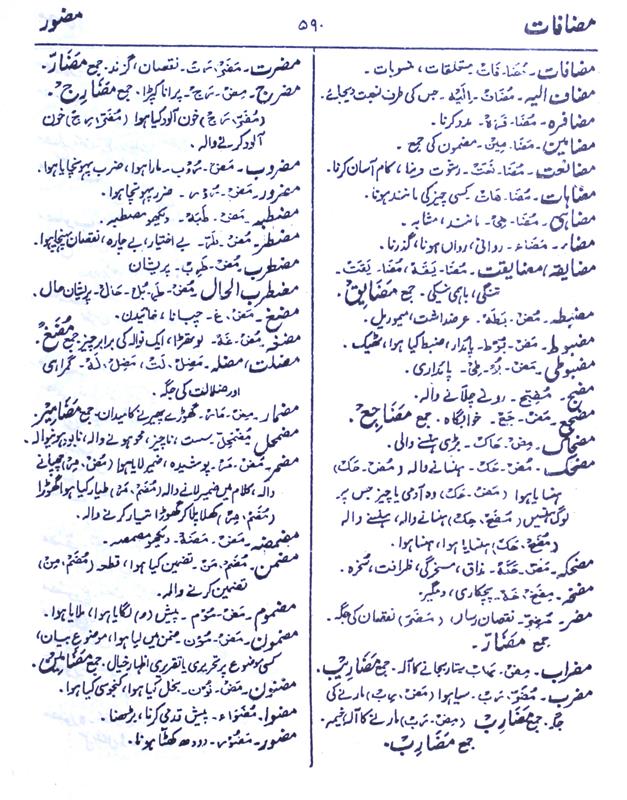 مضافات
۵۹۰
مضور
مضافات۔ مُضَا۔ فَات۔ متعلقات، منسوبات۔
مضاف الیہ۔ مُضَاتْ۔ اِلَیْہ۔ جس کی طرف نسبت دیجائے۔
مضافرہ۔ مُضَا۔ فَرَہْ۔ مدد کرنا۔
مضامین۔ مَضَا۔ مِیْن۔ مضمون کی جمع۔
مضانعت۔ مُضَا۔ نَعَتْ۔ رشوت دینا، کام آسان کرنا۔
مضاہات۔ مُضَا۔ ھَات۔ کسی چیز کی مانند ہونا۔
مضاہی۔ مُضَا۔ ھِیْ۔ مانند، مشابہ۔
مضاء۔ مَضَاء۔ روانی، رواں ہونا، گذرنا۔
مضایقہ، مضایقت۔ مُضَا۔ یَقَہْ، مُضَا۔ یَقَتْ۔
تنگی، باہمی تنگی۔ جمع مَضَایِق۔
مضبطہ۔ مَضْ۔ بَطَہْ۔ عرضداشت، میموریل۔
مضبوط۔ مَضْ۔ بُوْط۔ پائدار، ضبط کیا ہوا، ٹھیک۔
مضبوطی۔ مَضْ۔ بُوْ۔ طِیْ۔ پائداری۔
مضج۔ مُضِجّ۔ رونے چلانے والہ۔
مضجع۔ مَضْ۔ جَعْ۔ خوابگاہ۔ جمع مَضَاجِع۔
مضحاک۔ مِضْ۔ حَاک۔ بڑی ہنسنے والی۔
مضحک۔ مُضْ۔ حِکْ۔ ہنسانے والہ (مُضْ۔ حَکْ)
ہنسایا ہوا (مَضْ۔ حَکْ) وہ آدمی یا چیز جس پر
لوگ ہنسیں (مُضَحْ۔ حِکْ) ہنسانے والہ، ہنسنے والہ
(مُضَحْ۔ حَکْ) ہنسایا ہوا، ہنسا ہوا۔
مضحکہ۔ مَضْ۔ حَکَہْ۔ مذاق، مسخرگی، ظرافت، مسخرہ۔
مضخہ۔ مِضَخْ۔ خَہْ۔ پچکاری، دمگیر۔
مضر۔ مُضِرّ۔ نقصان رساں، (مَضَرّ) نقصان کی جگہ۔
جمع مَضَارّ۔
مضراب۔ مِضْ۔ رَاب۔ ستار بجانے کا آلہ۔ جمع مَضَارِیْب۔
مضرب۔ مُضَرَّ۔ رَبْ۔ سیا ہوا (مَضْ۔ رِبْ) مارنے کی
جگہ جمع مَضَارِب (مِضْ۔ رَبْ) مارنے کا آلہ، خیمہ۔
جمع مَضَارِب۔
مضرت۔ مَضَرْ۔ رَتْ۔ نقصان، گزند۔ جمع مَضَارّ۔
مضرج۔ مِضْ۔ رَجْ۔ پرانا کپڑا۔ جمع مَضَارِج۔
(مُضَرْ۔ رَجْ) خون آلود کیا ہوا (مُضَرْ۔ رِجْ) خون
آلود کرنے والہ۔
مضروب۔ مَضْ۔ رُوْب۔ مارا ہوا، ضرب پہونچایا ہوا۔
مضرور۔ مَضْ۔ رُوْر۔ ضرر پہونچا ہوا۔
مضطبہ۔ مَضْ۔ طَبَہْ۔ دیکھو مصطبہ۔
مضطر۔ مُضْ۔ طَرّ۔ بے اختیار، بے چارہ، نقصان پہنچایا ہوا۔
مضطرب۔ مُضْ۔ طَرِبْ۔ پریشان
مضطرب الحال۔ مُضْ۔ طَ۔ رِبُلْ۔ حَال۔ پریشان حال۔
مضغ۔ مَضْ۔ غ۔ چبانا، خائیدن۔
مضغہ۔ مُضْ۔ غَہْ۔ لوتھڑا، ایک نوالہ کی برابر چیز۔ جمع مُضَغْ۔
مضلت، مضلہ۔ مَضِلْ۔ لَتْ، مَضِلْ۔ لَہْ۔ گمراہی
اور ضلالت کی جگہ۔
مضمار۔ مِضْ۔ مَار۔ گھوڑے پھیرنے کا میدان۔ جمع مَضَامِیْر۔
مضمحل۔ مُضْمَحِلّ۔ سست، ناچیز، محو ہونے والہ، نابود ہونیوالہ۔
مضمر۔ مُضْ۔ مَرْ۔ پوشیدہ، ضمیر لایا ہوا (مُضْ۔ مِرْ) چھپانے
والہ، کلام میں ضمیر لانے والہ (مُضَمْ۔ مَرْ) طیار کیا ہوا گھوڑا
(مُضَمْ۔ مِرْ) کھلا پلا کر گھوڑا تیار کرنے والہ۔
مضمضہ۔ مَضْ۔ مَضَہْ۔ دیکھو مصمصہ۔
مضمن۔ مُضَمْ۔ مَنْ۔ تضمین کیا ہوا، قطعہ (مُضَمْ، مِنْ)
تضمین کرنے والہ۔
مضموم۔ مَضْ۔ مُوْم۔ پیش (ُ) لگایا ہوا، ملایا ہوا۔
مضمون۔ مَضْ۔ مُوْن۔ ضمن میں لیا ہوا، موضوع بیان،
کسی موضوع پر تحریری یا تقریری اظہار خیال۔ جمع مَضَامِیْن۔
مضنون۔ مَضْ۔ نُوْن۔ بخل کیا ہوا، کنجوسی کیا ہوا۔
مضوا۔ مُضُوَاء۔ پیش قدمی کرنا، بڑھنا۔
مضور۔ مَضُوْر۔ دودھ کھٹا ہونا۔